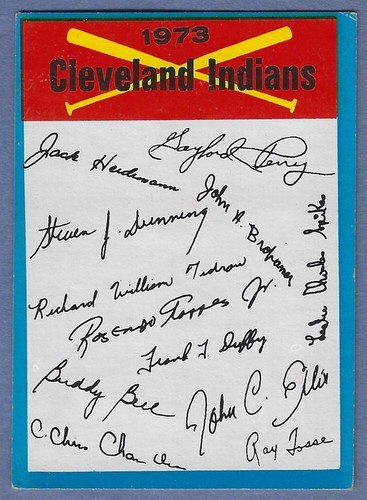 1973
Cleveland Indians
Jack Heidemann
Gaylord Perry
Steven J. Dunning
John A. Brohamer
Leslie Charles Spikes
Richard William Tidrow
Rosendo Torres Jr.
Frank T. Duffy
Buddy Bell
John C. Ellis
C. Chris Chambliss
Ray Fosse